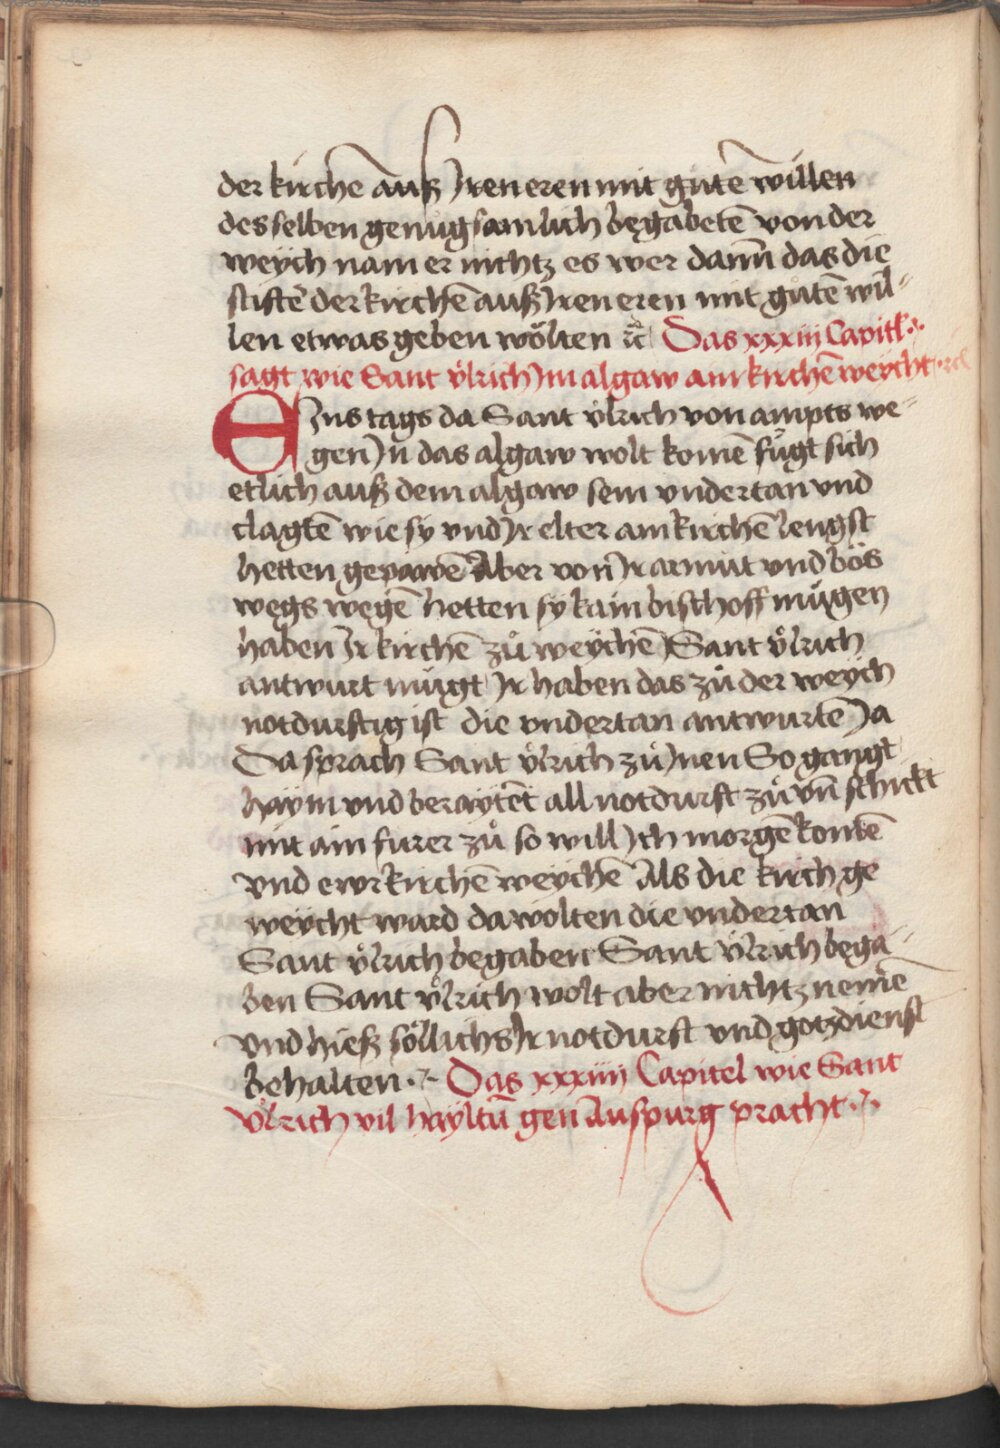 der kirchē auß Jren eren mit gůtē willen
des selben genůgsamlich begabetē von der
weÿch nam er nichtz es wer dann̄ das die
stiftē der kirchē auß Jren eren mit gůtē wil-
len etwas geben wölten ꝛc Das xxxiii Capitl
sagt wie Sant vͦlrich Jm algaw ain kirchē weycht
EJns tags da Sant vͦlrich von ampts we-
gen Jn das algaw wolt komē fůgt sich
etlich auß dem algaw sein vndertan vnd
clagtē wie sy vnd Jr elter ain kirchē lengst
hetten gepawē Aber von Jr armůt vnd bös
wegs wegē hetten sy kain bischoff mügen
haben Jr kirchē zů weÿchē Sant vͦlrich
antwurt mügt Jr haben das zů der weÿch
notdurftig ist die vndertan antwurtē Ja
Da sprach Sant vͦlrich zů Jnen So gangt
haÿm vnd beraÿtēt all notdurft zů vn̄ schickt
mir ain furer zů so will Jch morgē komē
vnd ewr kirchē weÿchē Als die kirch ge
weÿcht ward da wolten die vndertan
Sant vͦlrich begaben Sant vͦlrich bega-
ben Sant vͦlrich wolt aber nichtz nemē
vnd hieß söllichs Jr notdurft vnd gotzdienst
behalten Das xxxiiii Capitel wie Sant
vͦlrich vil haÿltū gen Auspurg pracht